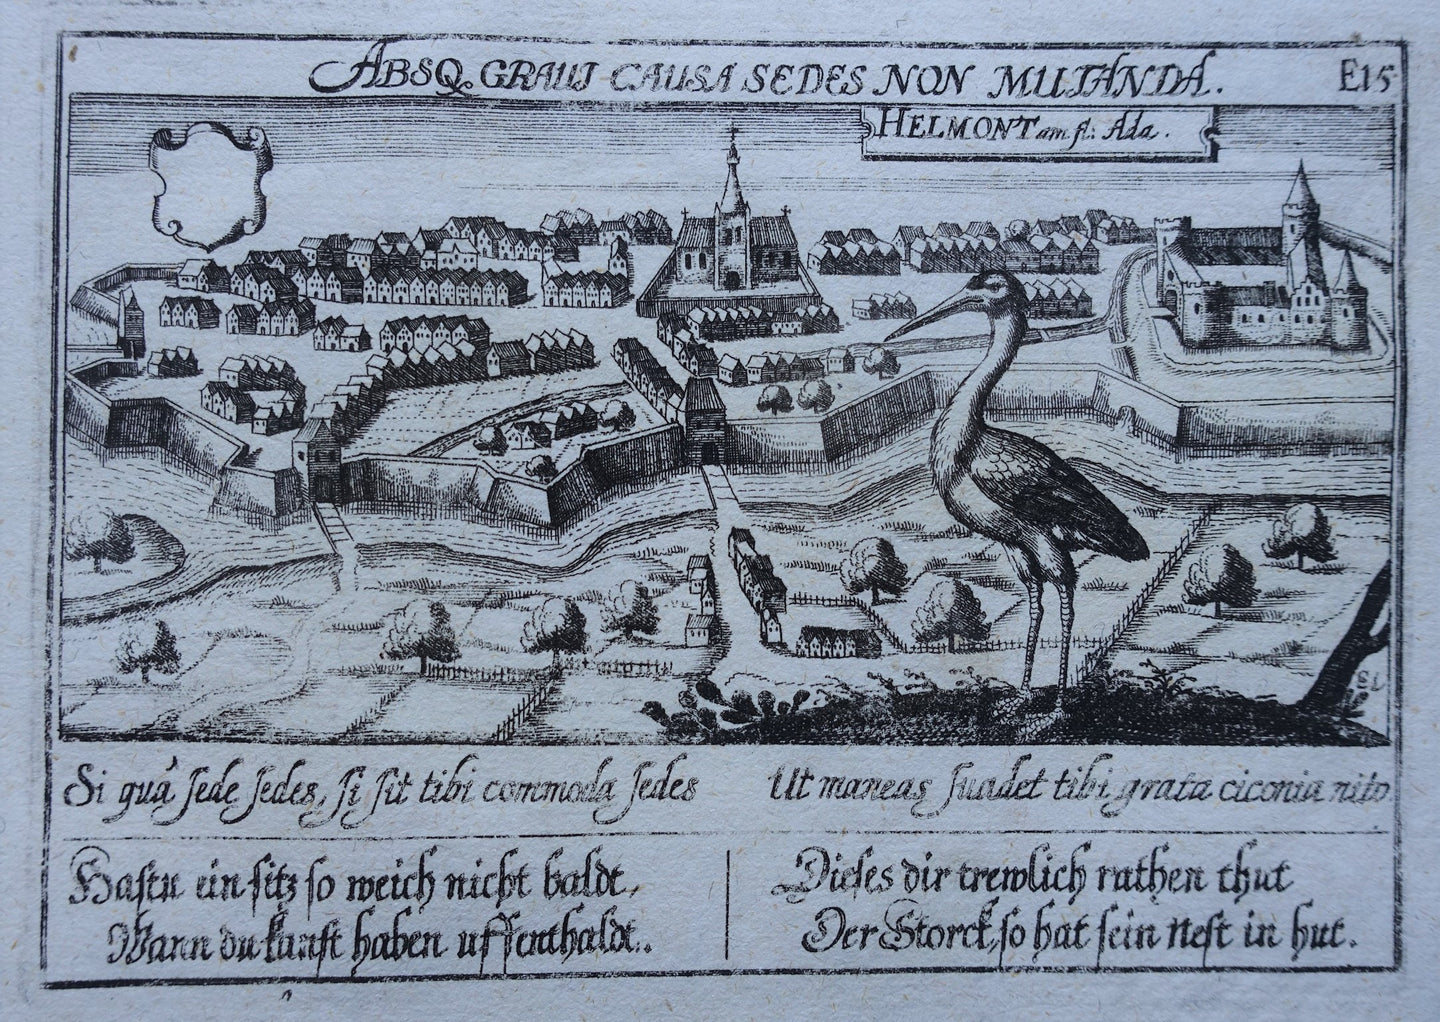 ABSQ GRAUI CAUSA SEDES NON MUTANDA.
E15
HELMONT am fl: Ada.
Si quâ sede sedes, si sit tibi commoda sedes
Ut maneas suadet tibi grata ciconia nito
Hastu ein sitz so weich nicht baldt,
Wann du kanst haben uffenthaldt.
Dieses dir trewlich rathen thut
Der Storck, so hat sein nest in hut.